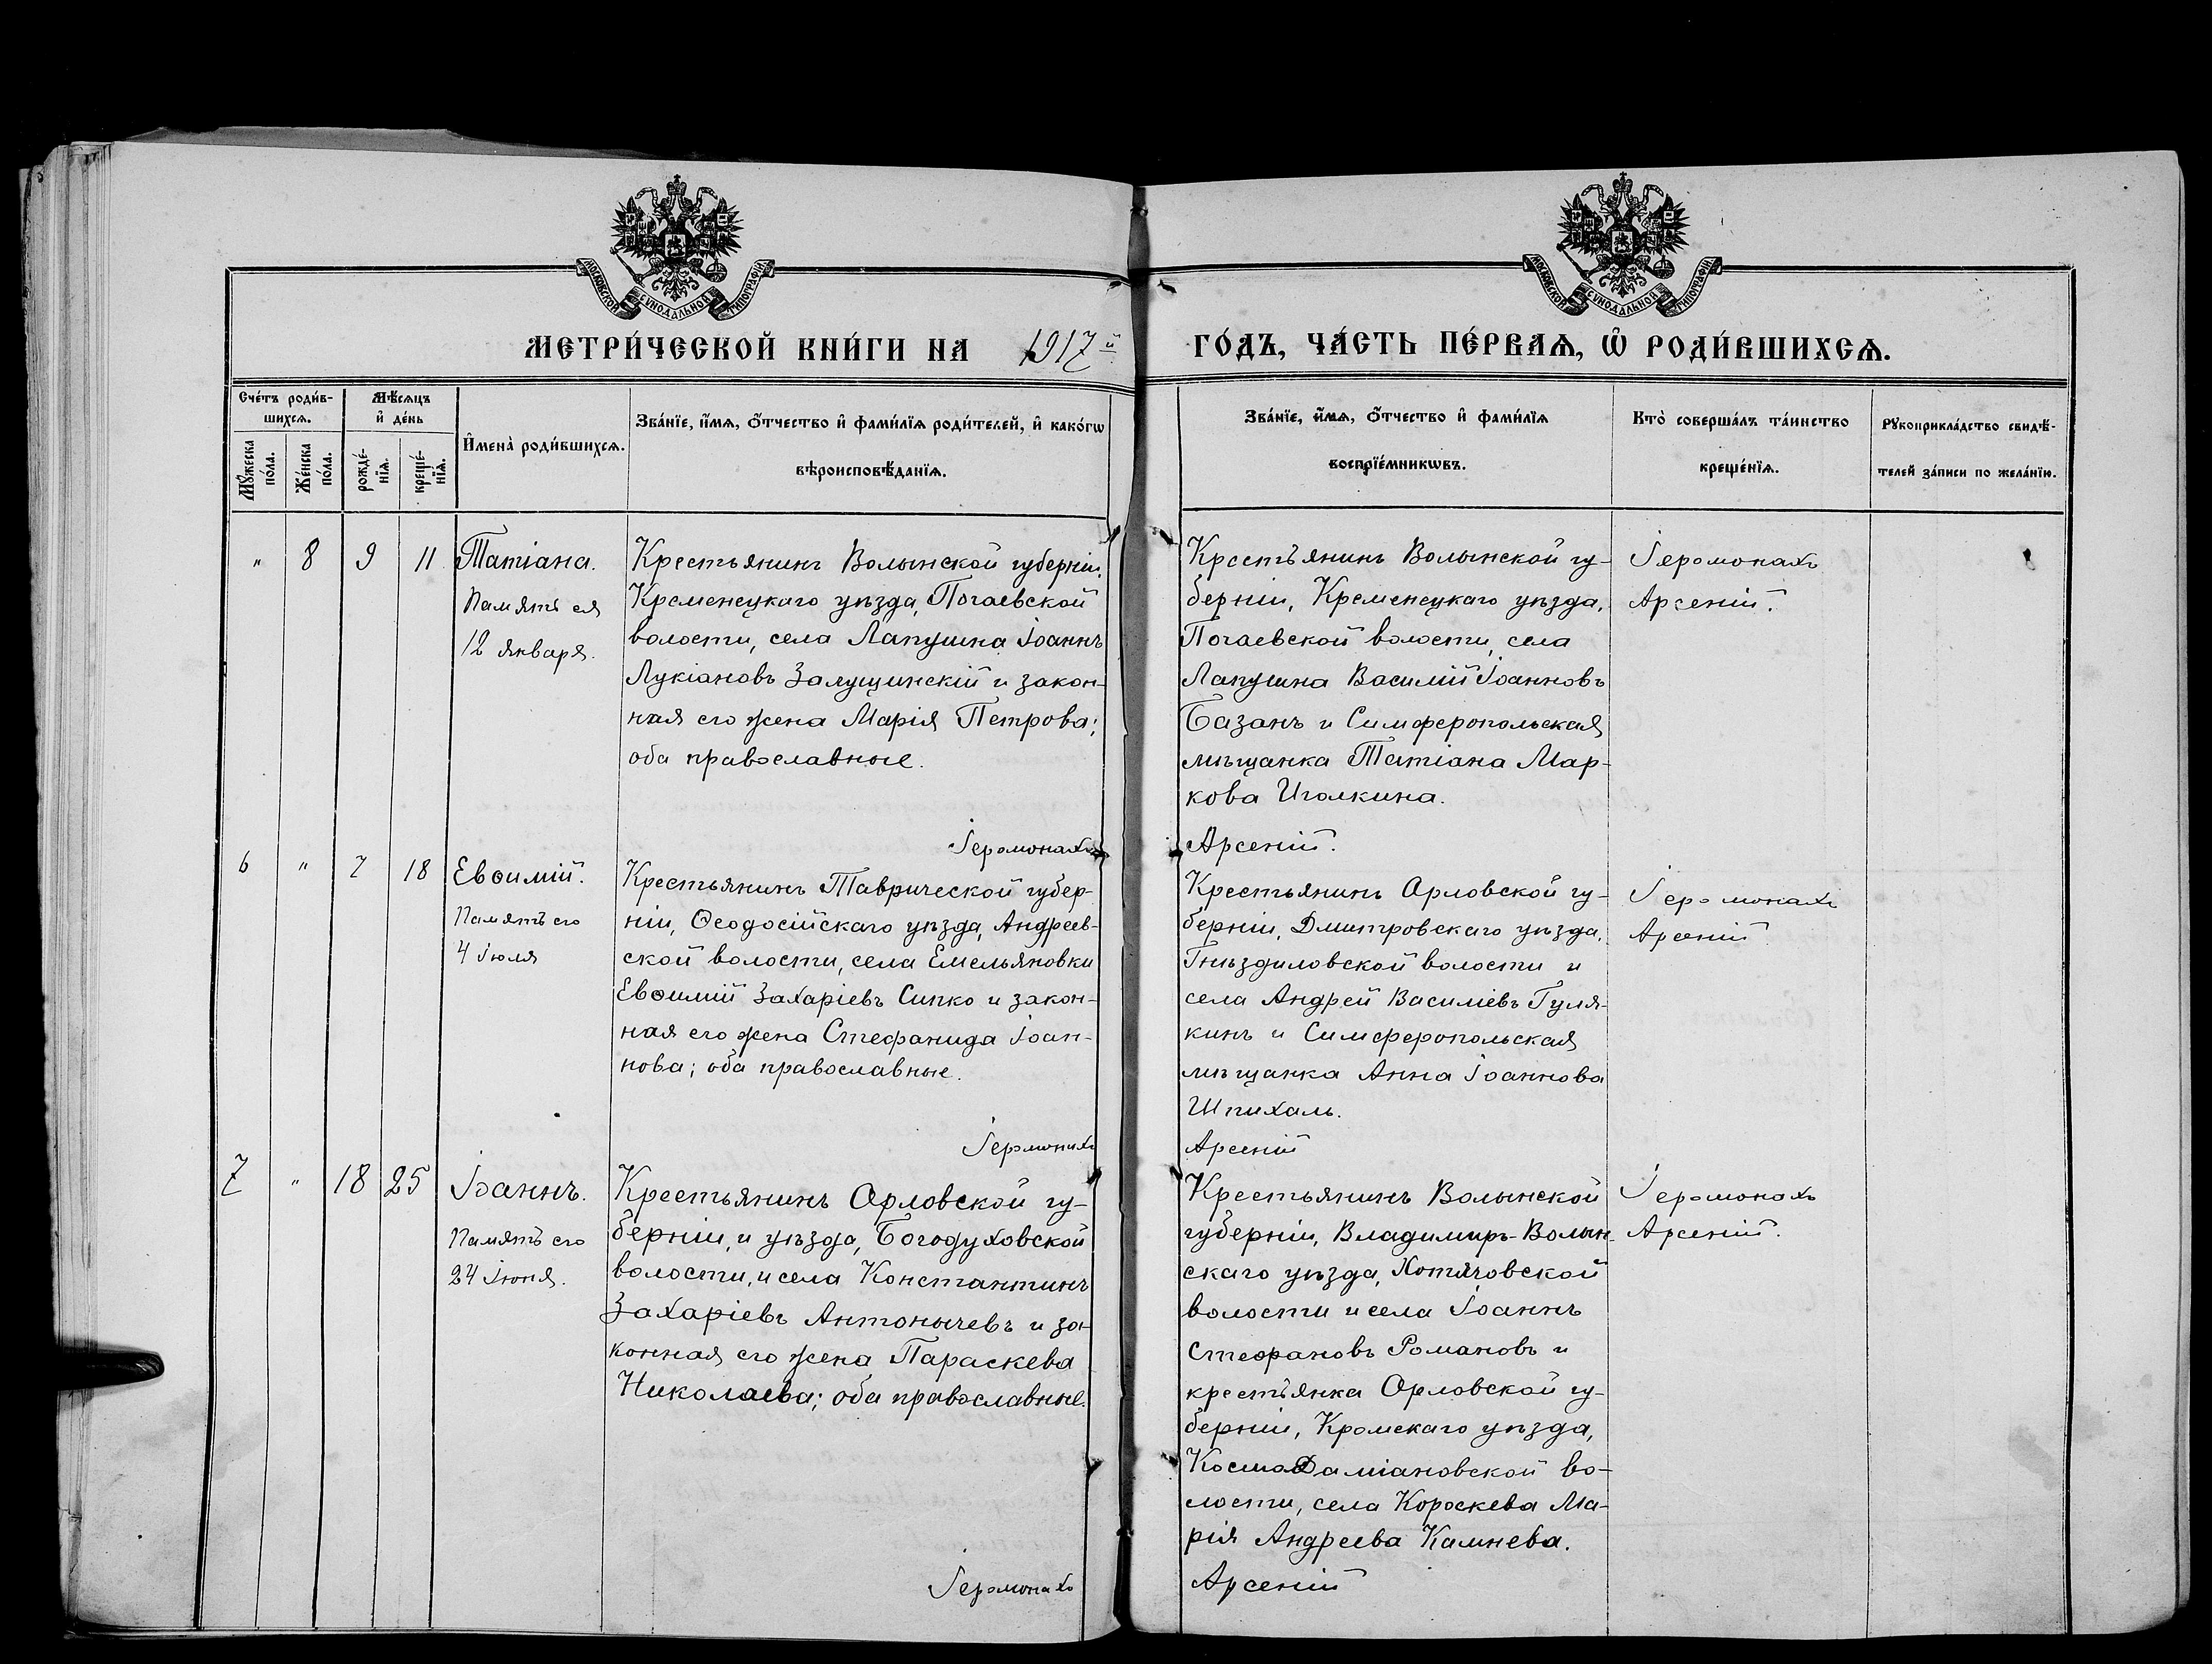 МОСКОВСКОЙ СѴНОДАЛЬНОЙ ТИПОГРАФІИ
МОСКОВСКОЙ СѴНОДАЛЬНОЙ ТИПОГРАФІИ
МЕТРИ́ЧЕСКОЙ КНИ́ГИ НА 1917й ГО́ДЪ, ЧА́СТЬ ПЕ́РВАѦ, Ѡ҆ РОДИ́ВШИХСѦ.
Сче́тъ роди́в-
шихсѧ.
Мѣ́сѧцъ
и҆ де́нь
Мꙋ́жеска
по́ла.
Же́нска
по́ла.
рожде́-
нїѧ.
креще́-
нїѧ.
И҆мена̀ роди́вшихсѧ.
Зва́нїе, и҆́мѧ, ѻ҆́тчество и҆ фами́лїѧ роди́телей, и҆ како́гѡ
вѣроисповѣ́данїѧ.
Зва́нїе, и҆́мѧ, ѻ҆́тчество и҆ фами́лїѧ
воспрїе́мникѡвъ.
Кто̀ соверша́лъ та́инство
креще́нїѧ.
Рꙋкоприкла́дство свидѣ́-
телей за́писи по жела́нїю.
" 8 9 11
Татіана.
Память ея
12 января.
Крестьянинъ Волынской губерніи,
Кременецкаго уѣзда, Почаевской
волости, села Лапушна Іоаннъ
Лукіановъ Залущинскій и закон-
ная его жена Марія Петрова;
оба православные.
Крестьянинъ Волынской гу-
берніи, Кременецкаго уѣзда,
Почаевской волости, села
Лапушна Василій Іоанновъ
Базанъ и Симферопольская
мѣщанка Татіана Мар-
кова Иголкина.
Іеромонахъ
Арсеній.
Іеромонахъ Арсеній.
6 " 7 18
Евѳимій.
Память его
4 Іюля
Крестьянинъ Таврической губер-
ніи, Ѳеодосійскаго уѣзда, Андреев-
ской волости, села Емельяновки
Евѳимій Захаріевъ Сипко и закон-
ная его жена Стефанида Іоан-
нова; оба православные.
Крестьянинъ Орловской гу-
берніи, Дмитровскаго уѣзда,
Гнѣздиловской волости и
села Андрей Василіевъ Гуля-
кинъ и Симферопольская
мѣщанка Анна Іоаннова
Шпихаль.
Іеромонахъ
Арсеній
Іеромонахъ Арсеній
7 " 18 25
Іоаннъ.
Память его
24 Іюня.
Крестьянинъ Орловской гу-
берніи, и уѣзда, Богодуховской
волости, и села Константинъ
Захаріевъ Антонычевъ и за-
конная его жена Параскева
Николаева; оба православные.
Крестьянинъ Волынской
губерніи, Владимиръ-Волын-
скаго уѣзда, Хотячовской
волости и села Іоаннъ
Стефановъ Романовъ и
крестьянка Орловской гу-
берніи, Кромскаго уѣзда,
КосмоДаміановской во-
лости, села Короскева Ма-
рія Андреева Камнева.
Іеромонахъ
Арсеній.
Іеромонахъ Арсеній